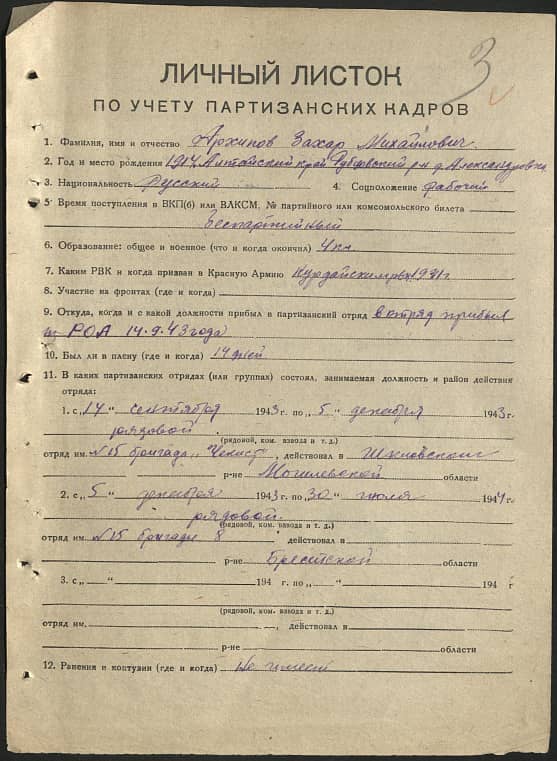 3
ЛИЧНЫЙ ЛИСТОК
ПО УЧЕТУ ПАРТИЗАНСКИХ КАДРОВ
1. Фамилия, имя и отчество Архипов Захар Михайлович.
2. Год и место рождения 1917 Алтайский край Рубцовский р-н д. Александровка
3. Национальность Русский 4. Соцположение рабочий
5. Время поступления в ВКП(б) или ВЛКСМ, № партийного или комсомольского билета
беспартийный
6. Образование: общее и военное (что и когда окончил) 4 кл.
7. Каким РВК и когда призван в Красную Армию Курдайским рвк 1941г.
8. Участие на фронтах (где и когда)
9. Откуда, когда и с какой должности прибыл в партизанский отряд в отряд прибыл
из РОА 14.9.43 года
10. Был ли в плену (где и когда) 14 дней
11. В каких партизанских отрядах (или группах) состоял, занимаемая должность и район действия
отряда:
1. с „14" сентября 1943 г. по „5" декабря 1943 г.
рядовой
(рядовой, ком. взвода и т. д.)
отряд им. №15 бригада „Чекист", действовал в Шкловском
р-не Могилевской области
2. с „5" декабря 1943 г. по „30" июля 1944 г.
рядовой.
(рядовой, ком. взвода и т. д.)
отряд им. №15 бригады 8 действовал в
р-не Брестской области
3. с „ " 194 г. по „ " 194 г
(рядовой, ком. взвода и т. д.)
отряд им. , действовал в
р-не области
12. Ранения и контузии (где и когда) Не имеет